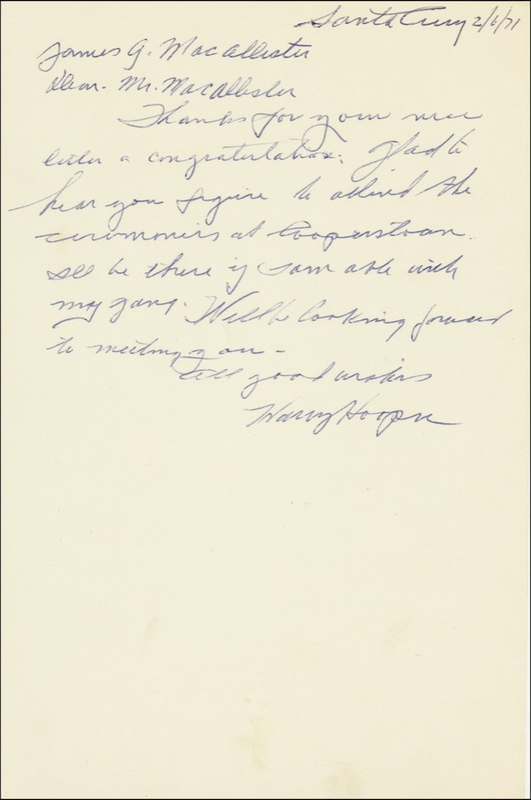 Santa Cruz 2/6/71
James G. Macallister
Dear Mr. Macallister
Thanks for your nice
letter & congratulations. Glad to
hear you figure to attend the
ceremonies at Cooperstown.
I'll be there if I am able with
my gang. Will be looking forward
to meeting you -
All good wishes
Harry Hooper